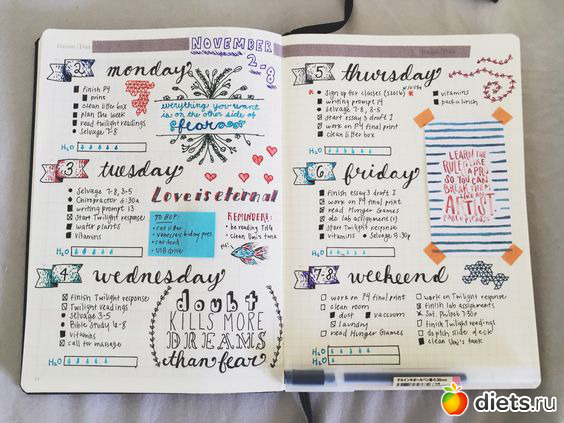 NOVEMBER
2-8
2
monday
finish P4
print
clean litter box
plan the week
read twilight readings
Selvage 7-8
everything you want
is on the other side of
fear
H2O
3
tuesday
Selvage 7-8, 3-5
Chiropractor 6:30a
writing prompt 13
start Twilight response
water plants
vitamins
H2O
Love is eternal
TO BUY:
cat litter
cat food
USB drive
REMINDERS:
be reading
clean Umi's tank
Hi!
4
wednesday
finish Twilight response
Twilight readings
Selvage 3-5
Bible Study 6-8
vitamins
call for massage
H2O
doubt
KILLS MORE
DREAMS
than fear
5
thursday
Sign up for classes
writing prompt 14
Selvage 7-8, 3-5
start essay 3 draft 1
work on P4 final print
clean litter box
vitamins
pack a lunch
H2O
6
friday
finish essay 3 draft 1
work on P4 final print
read Hunger Games
do lab assignment(s)
start Twilight response
vitamins
Selvage
H2O
LEARN THE
RULES LIKE
A PRO,
SO YOU CAN
BREAK THEM
LIKE AN
ARTIST
PABLO PICASSO
7-8
weekend
work on P4 final print
clean room
dust
vaccuum
laundry
read Hunger Games
work on Twilight response
finish lab assignments
finish Twilight readings
clean Umi's tank
H2O
diets.ru